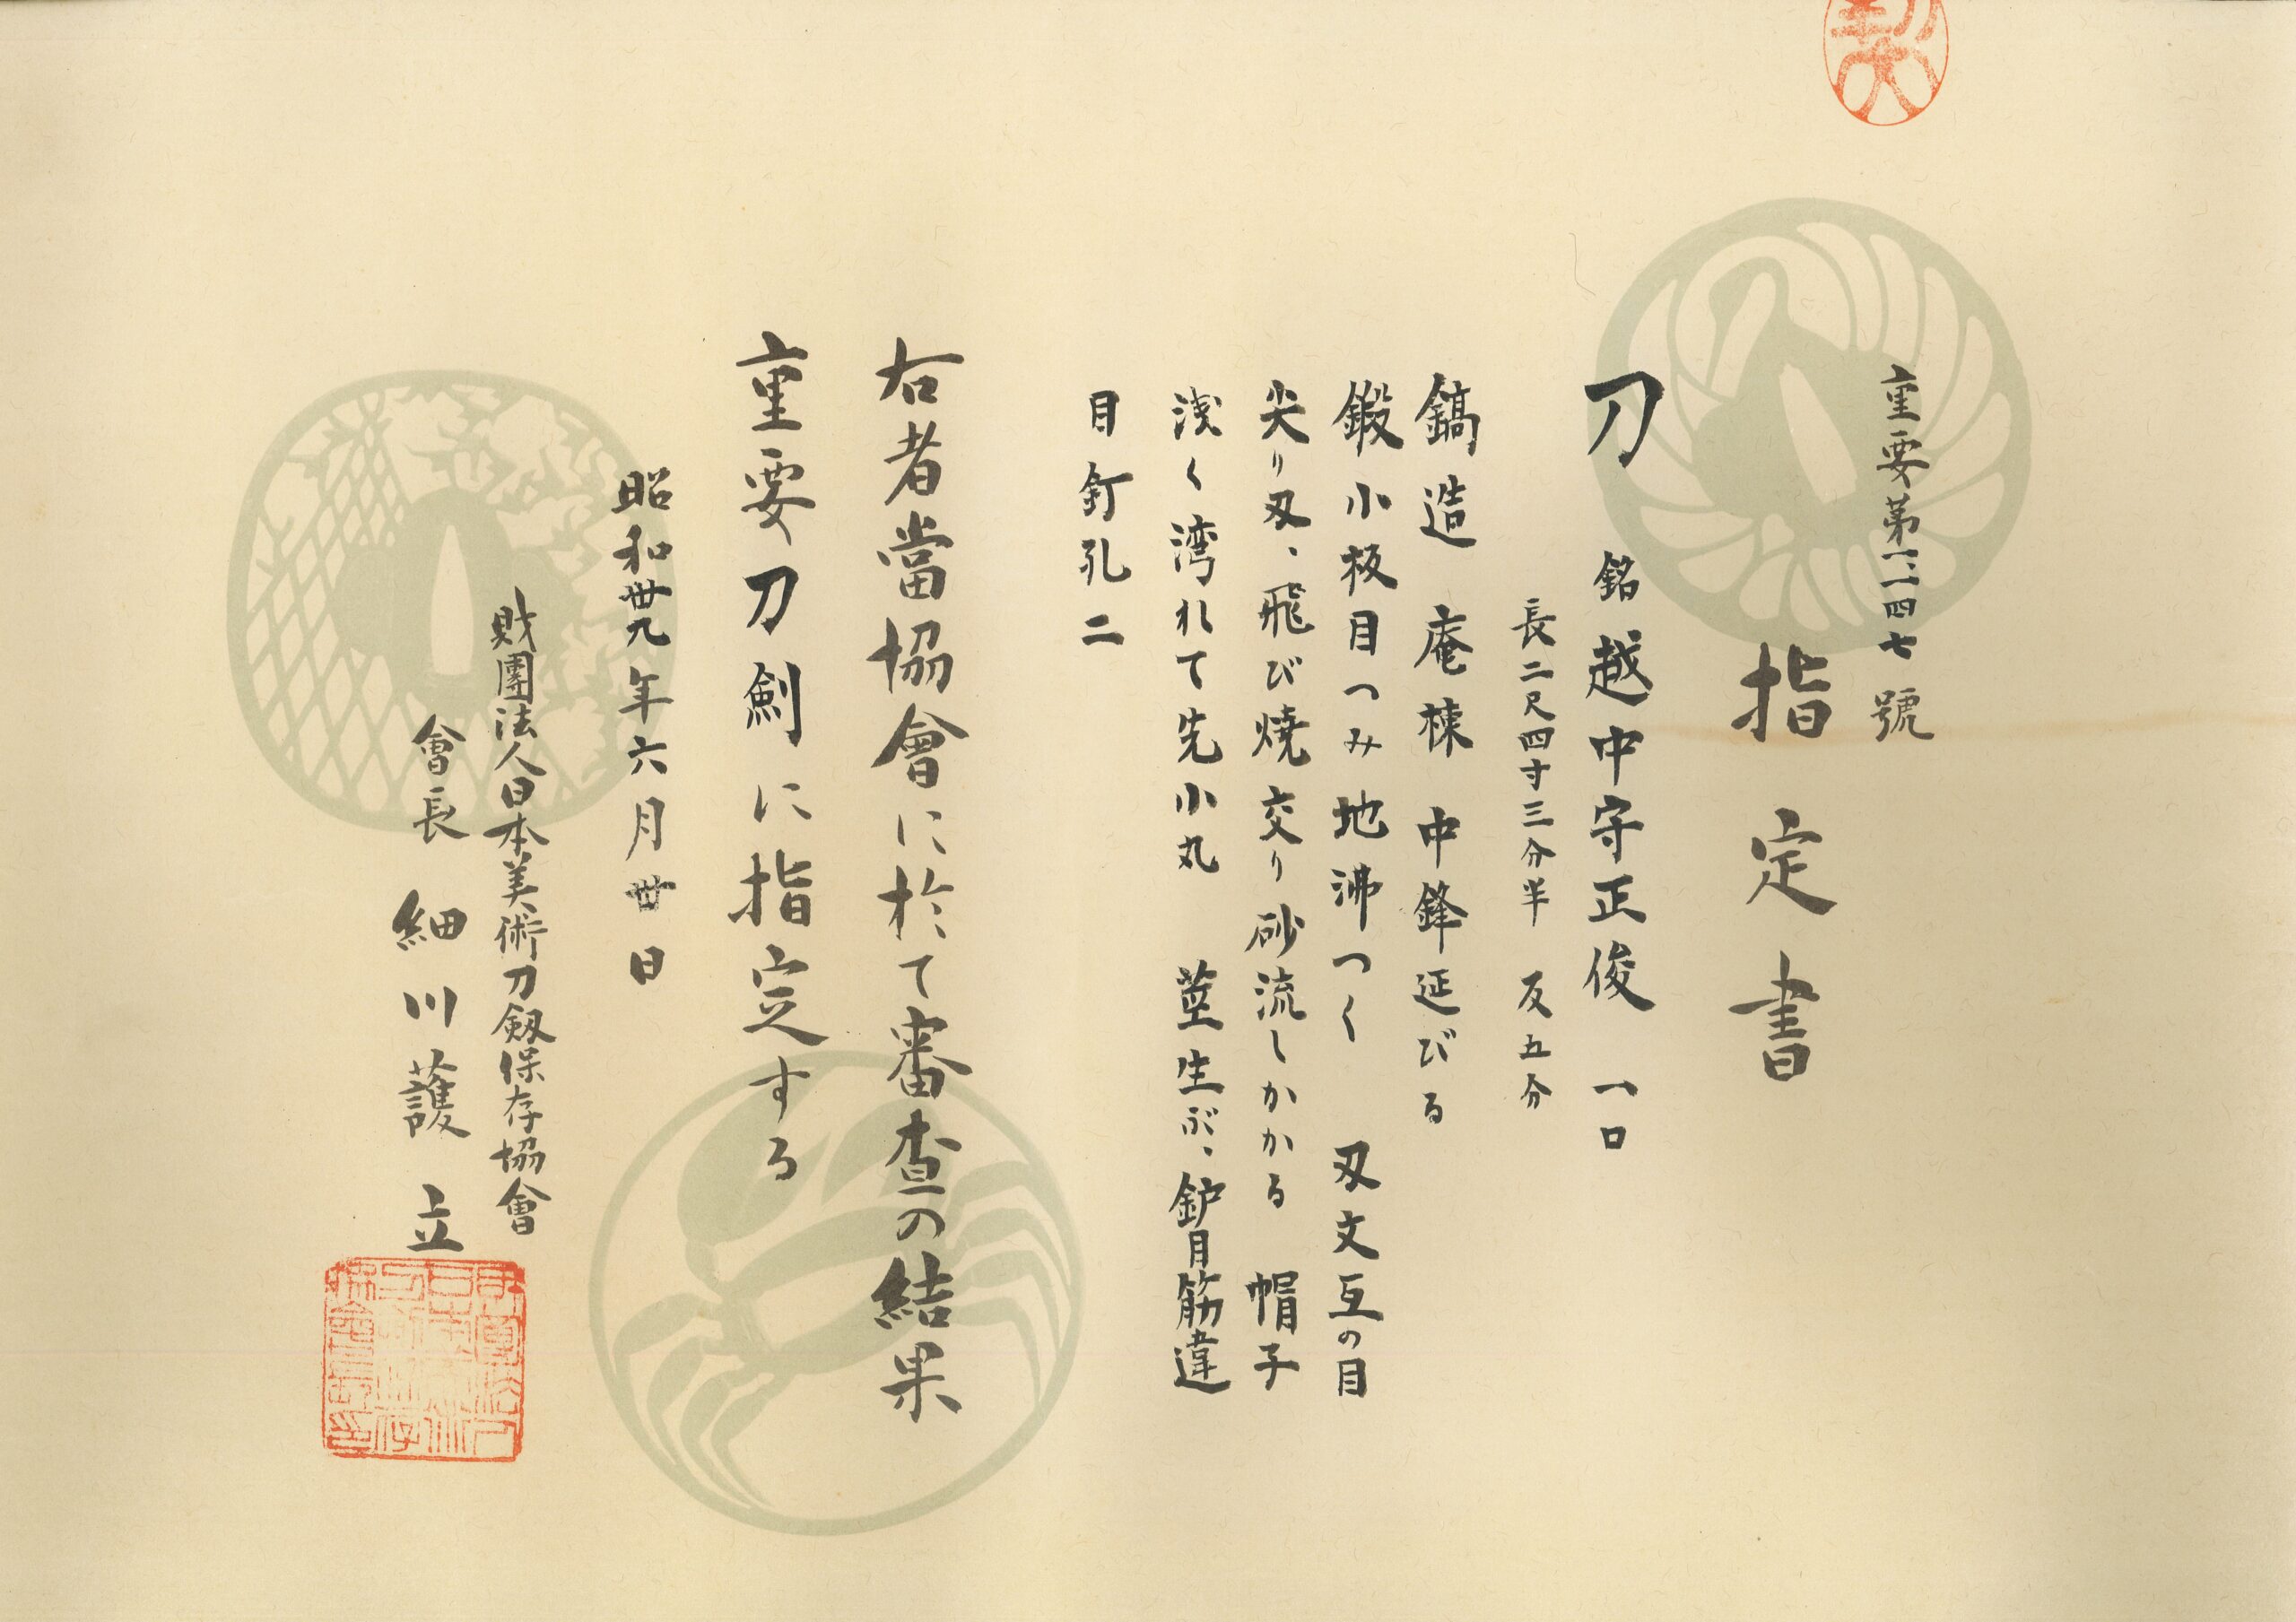 重要第一、一四七號
指定書
刀 銘 越中守正俊 一口
長二尺四寸三分半 反五分
鎬造 庵棟 中鋒延びる
鍛小板目つみ地沸つく 刃文互の目
尖り刃、飛び焼交り砂流しかかる 帽子
浅く湾れて先小丸 茎生ぶ、鈩目筋違
目釘孔二
右者當協會に於て審査の結果
重要刀剣に指定する
昭和卅九年六月卅日
財團法人日本美術刀劔保存協會
會長 細川護立